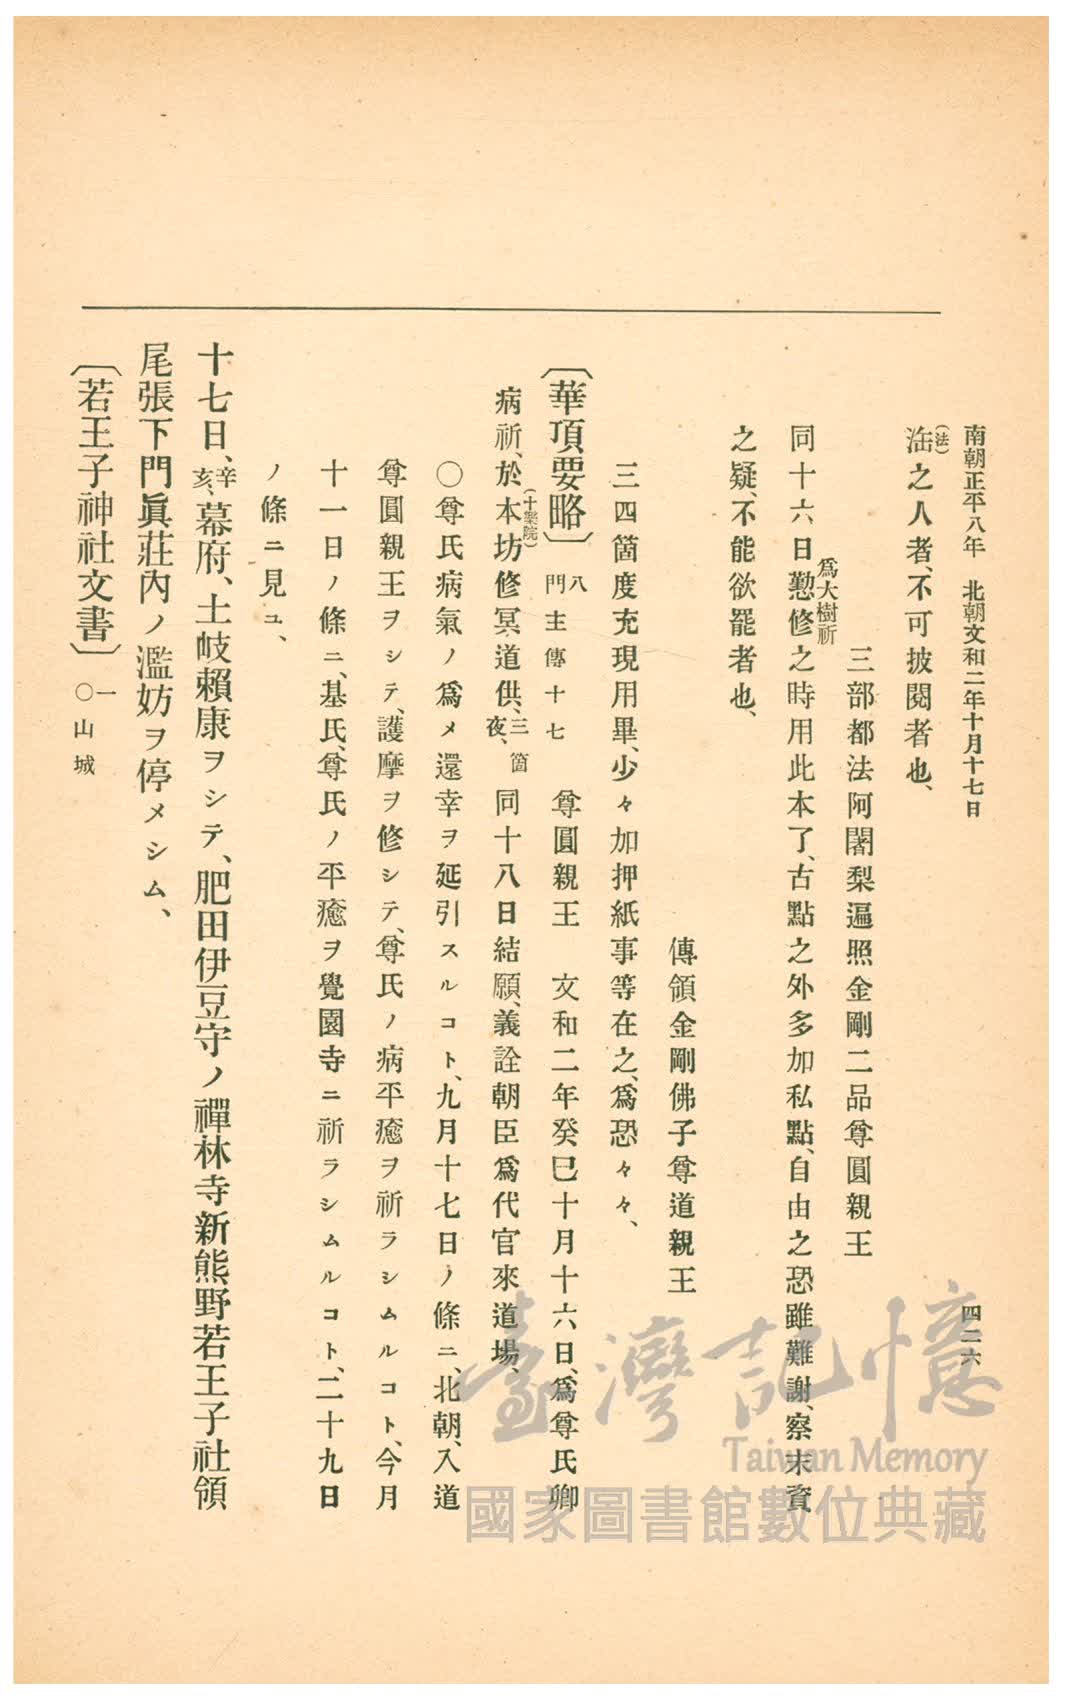 南朝正平八年　北朝文和二年十月十七日　四二六
浩(法)之人者、不可披閱者也、
三部都法阿闍梨遍照金剛二品尊圓親王
同十六日懃修爲大樹祈之時用此本了、古點之外多加私點、自由之恐雖難謝、察末資
之疑、不能欲罷者也、
傳領金剛佛子尊道親王
三四箇度充現用畢、少々加押紙事等在之、爲恐々々、
〔華頂要略〕八門主傳十七　尊圓親王　文和二年癸巳十月十六日、爲尊氏卿
病祈、於本坊(十樂院)修冥道供、三箇夜、同十八日結願、義詮朝臣爲代官來道場、
〇尊氏病氣ノ爲メ還幸ヲ延引スルコト、九月十七日ノ條ニ、北朝、入道
尊圓親王ヲシテ、護摩ヲ修シテ、尊氏ノ病平癒ヲ祈ラシムルコト、今月
十一日ノ條ニ、基氏、尊氏ノ平癒ヲ覺園寺ニ祈ラシムルコト、二十九日
ノ條ニ見ユ、
十七日、辛亥、幕府、土岐賴康ヲシテ、肥田伊豆守ノ禪林寺新熊野若王子社領
尾張下門眞莊內ノ濫妨ヲ停メシム、
〔若王子神社文書〕一〇山城
臺灣記憶
Taiwan Memory
國家圖書館數位典藏